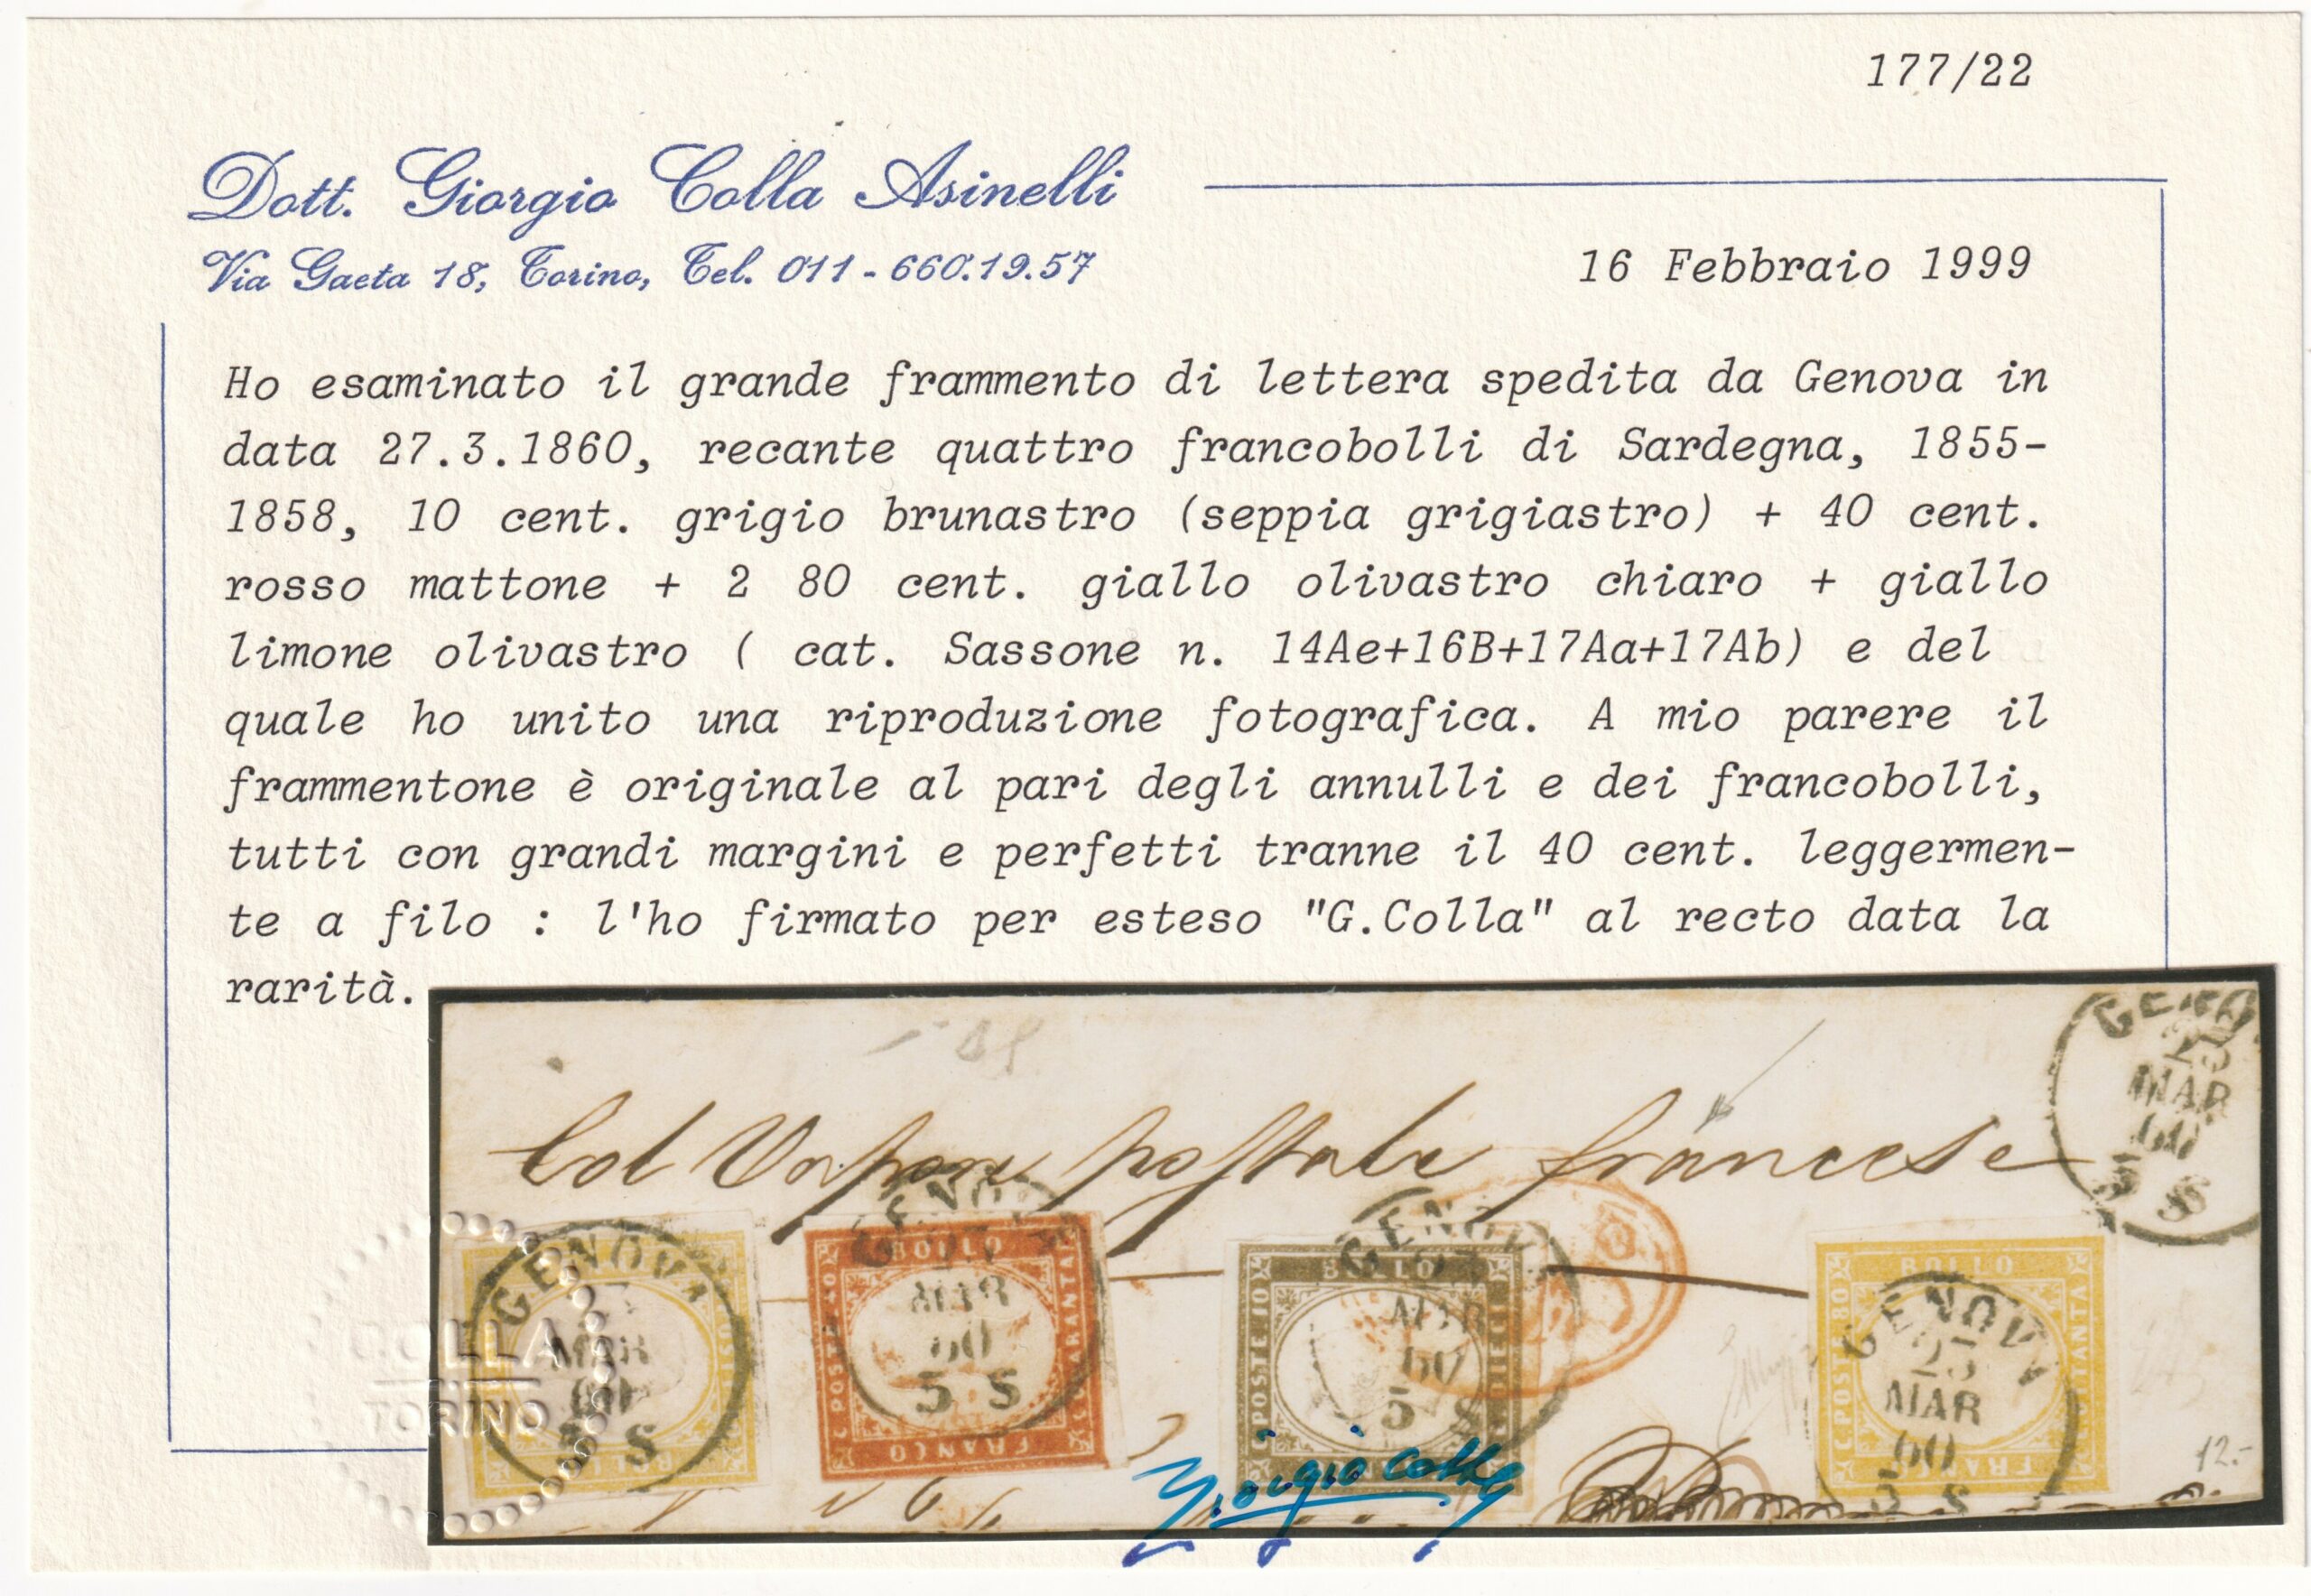 177/22
Dott. Giorgio Colla Asinelli
Via Gaeta 18, Torino, Tel. 011-660.19.57
16 Febbraio 1999
Ho esaminato il grande frammento di lettera spedita da Genova in
data 27.3.1860, recante quattro francobolli di Sardegna, 1855-
1858, 10 cent. grigio brunastro (seppia grigiastro) + 40 cent.
rosso mattone + 2 80 cent. giallo olivastro chiaro + giallo
limone olivastro ( cat. Sassone n. 14Ae+16B+17Aa+17Ab) e del
quale ho unito una riproduzione fotografica. A mio parere il
frammentone è originale al pari degli annulli e dei francobolli,
tutti con grandi margini e perfetti tranne il 40 cent. leggermen-
te a filo : l'ho firmato per esteso "G.Colla" al recto data la
rarità.
Col Vapore postale francese
GENO
MAR
60
5 S
GENOVA
MAR
60
S
COLLA
TORINO
GENOV
MAR
60
5 S
BOLLO
C. POSTE 40
C. QUARANTA
FRANCO
GENOV
MAR
60
5 S
BOLLO
C. POSTE 10
C. DIECI
GENOVA
MAR
60
5 S
BOLLO
C. POSTE 80
FRANCO
Giorgio Colla
12.-